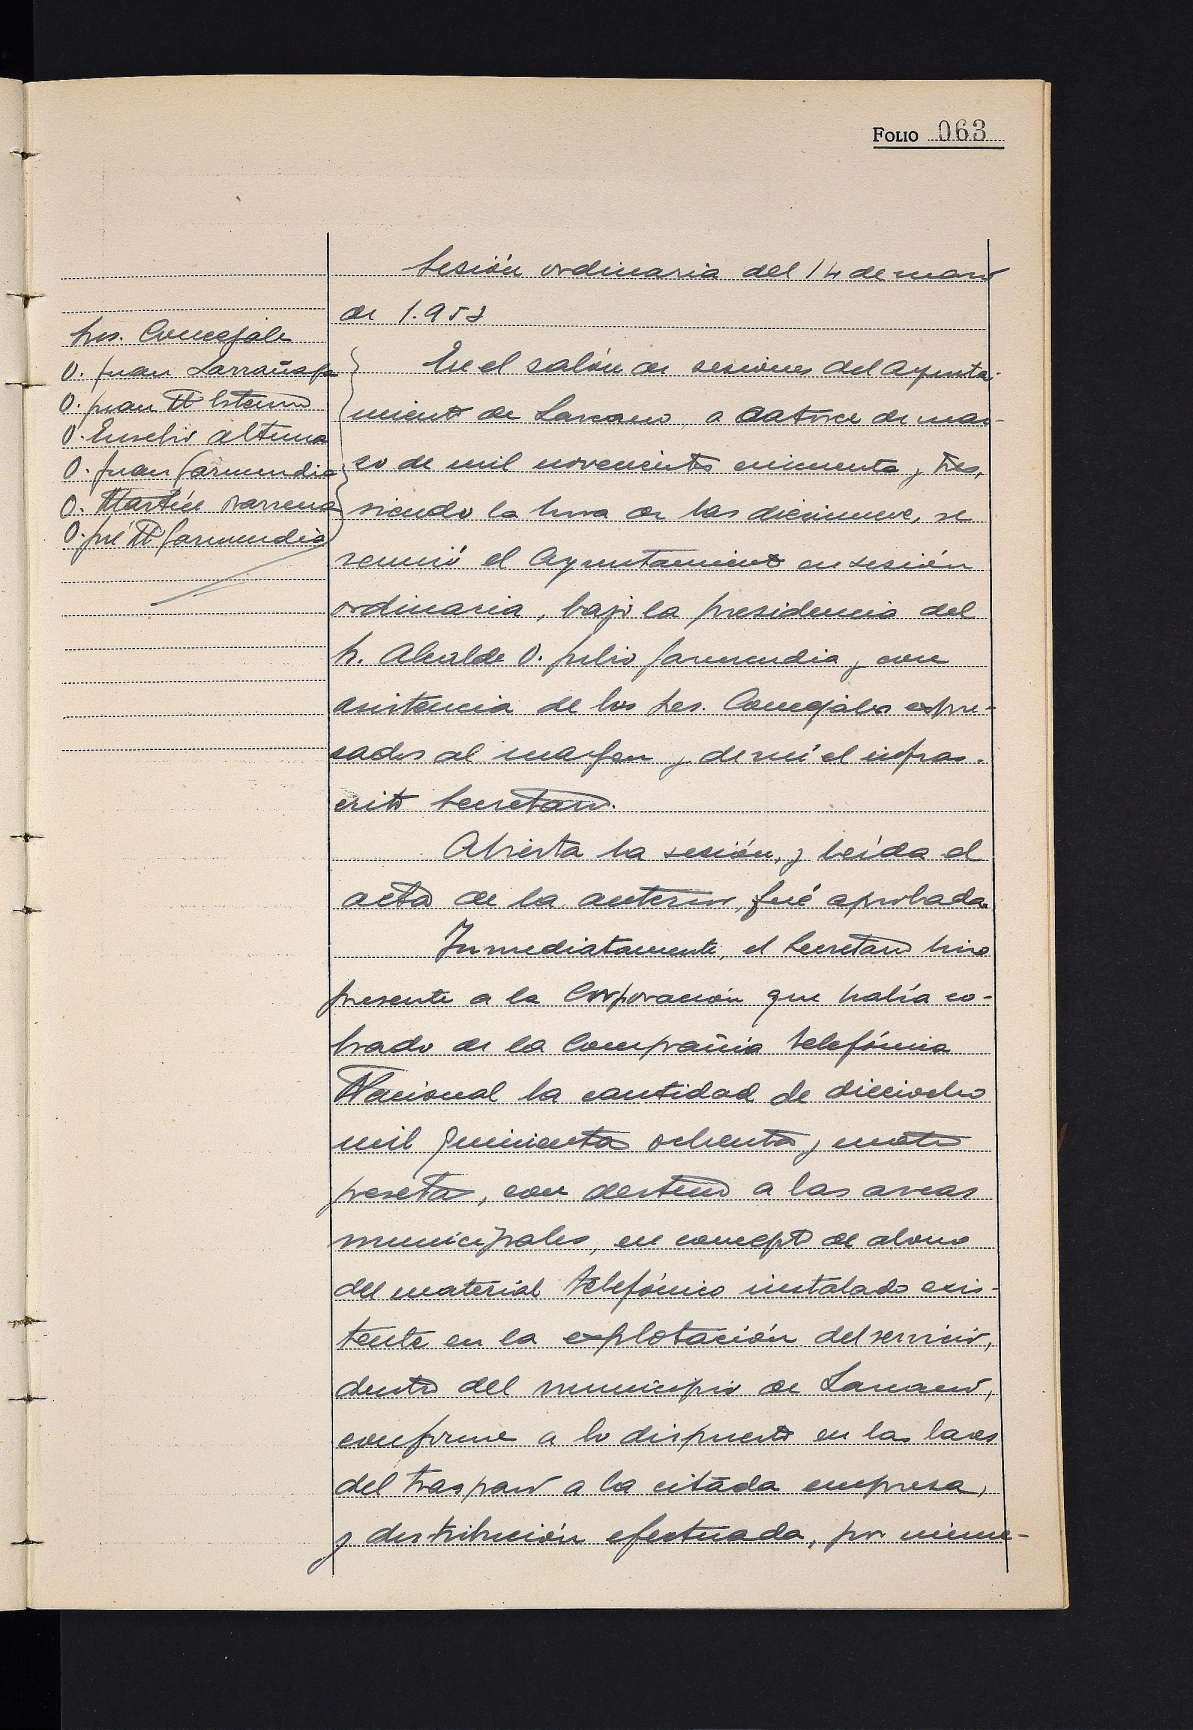 FOLIO 063
Sesión ordinaria del 14 de marzo
de 1.953
Srs. Concejales
D. Juan Larrañaga
D. Juan Mª
D. Eusebio Altuna
D. Juan Garmendia
D. Martín Barrena
D. José Mª Garmendia
En el salón de sesiones del Ayunta-
miento de Lazcano, a catorce de mar-
zo de mil novecientos cincuenta y tres,
siendo la hora de las diecinueve, se
reunió el Ayuntamiento en sesión
ordinaria, bajo la presidencia del
Sr. Alcalde D. Julio Garmendia y con
asistencia de los Srs. Concejales expre-
sados al margen y de mí el infras-
crito Secretario.
Abierta la sesión, y leída el
acta de la anterior, fué aprobada.
Inmediatamente, el Secretario hizo
presente a la Corporación que había co-
brado de la Compañia telefónica
Nacional la cantidad de dieciocho
mil quinientas ochenta y cuatro
pesetas, con destino a las arcas
municipales, en concepto de abono
del material telefónico instalado exis-
tente en la explotación del servicio,
dentro del municipio de Lazcano,
conforme a lo dispuesto en las bases
del traspaso a la citada empresa,
y distribución efectuada, por